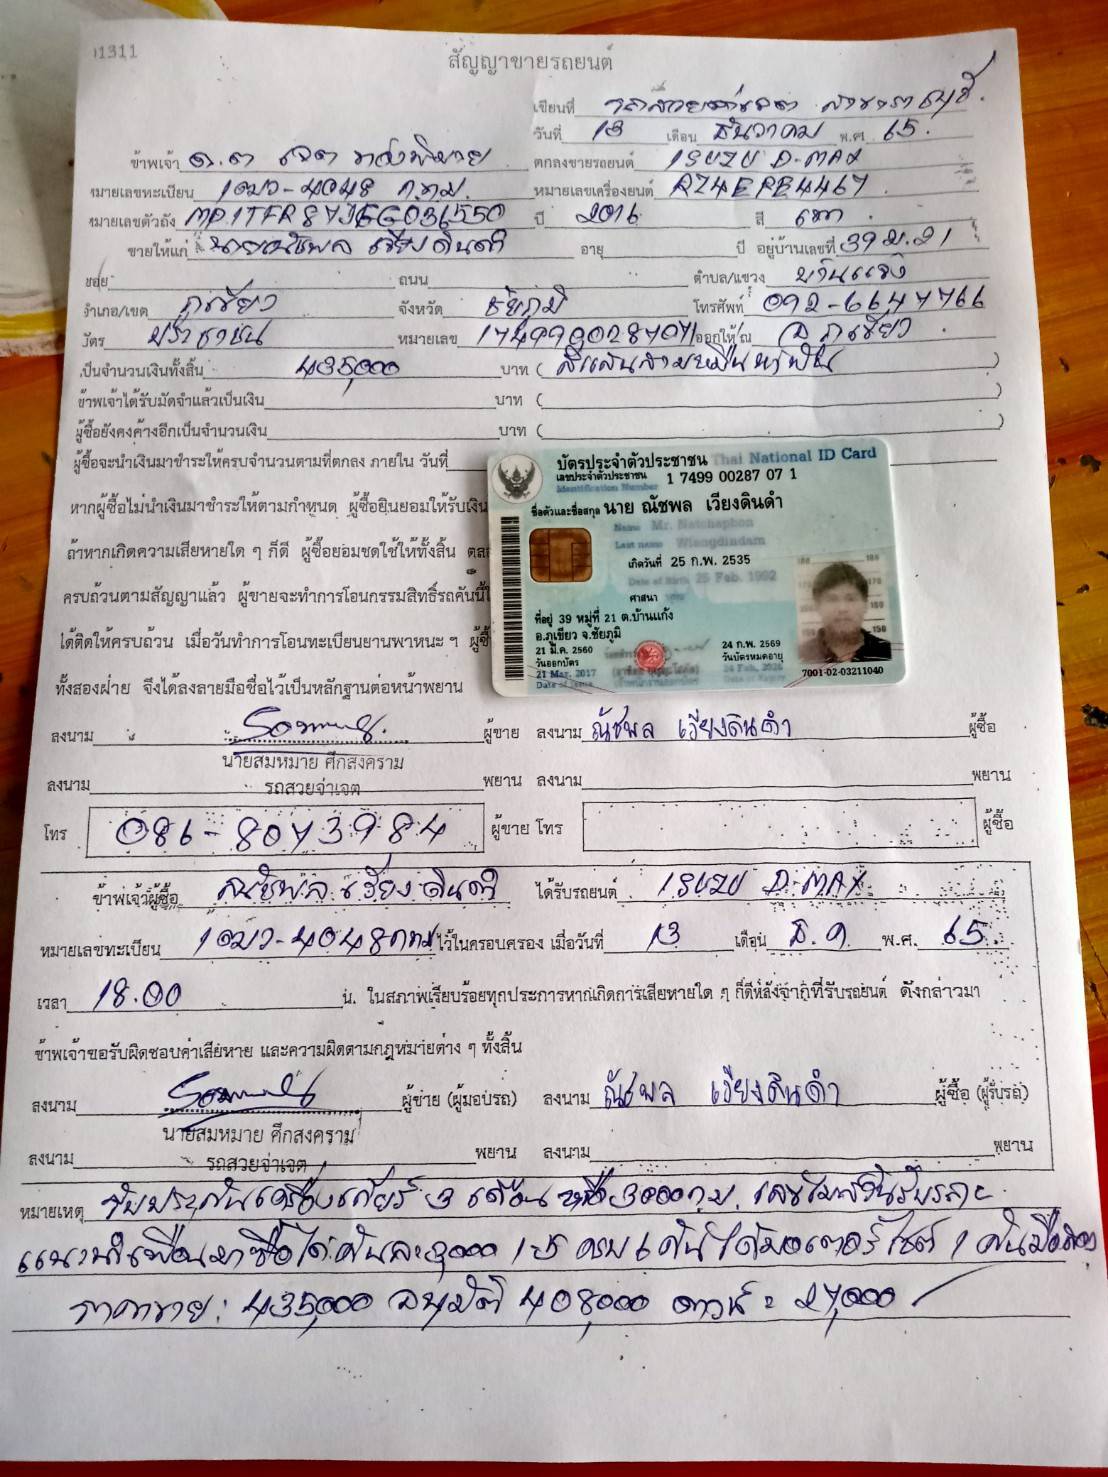 01311
สัญญาขายรถยนต์
เขียนที่
วันที่ 13 เดือน ธันวาคม พ.ศ. 65.
ข้าพเจ้า ด.ต ตกลงขายรถยนต์ ISUZU D-MAX
หมายเลขทะเบียน 1ฒว-4048 กทม. หมายเลขเครื่องยนต์ RZ4EPE4467
หมายเลขตัวถัง ปี 2016 สี เทา
ขายให้แก่ นายณัชพล เวียงดินดำ อายุ ปี อยู่บ้านเลขที่ 39 ม.21
ซอย ถนน ตำบล/แขวง บ้านแก้ง
อำเภอ/เขต ภูเขียว จังหวัด ชัยภูมิ โทรศัพท์ 092-6647766
บัตร ประชาชน หมายเลข 1749900287071 ออกให้ ณ อ.ภูเขียว
เป็นจำนวนเงินทั้งสิ้น 435,000 บาท ( สี่แสนสามหมื่นห้าพัน )
ข้าพเจ้าได้รับมัดจำแล้วเป็นเงิน บาท ( )
ผู้ซื้อยังคงค้างอีกเป็นจำนวนเงิน บาท (
ผู้ซื้อจะนำเงินมาชำระให้ครบจำนวนตามที่ตกลง ภายใน วันที่
หากผู้ซื้อไม่นำเงินมาชำระให้ตามกำหนด ผู้ซื้อยินยอมให้ริบเงิน
ถ้าหากเกิดความเสียหายใด ๆ ก็ดี ผู้ซื้อยอมชดใช้ให้ทั้งสิ้น ตลอ
ครบถ้วนตามสัญญาแล้ว ผู้ขายจะทำการโอนกรรมสิทธิ์รถคันนี้ใ
ได้ติดให้ครบถ้วน เมื่อวันทำการโอนทะเบียนยานพาหนะ ฯ ผู้ซื้
ทั้งสองฝ่าย จึงได้ลงลายมือชื่อไว้เป็นหลักฐานต่อหน้าพยาน
บัตรประจำตัวประชาชน Thai National ID Card
เลขประจำตัวประชาชน 1 7499 00287 07 1
Identification Number
ชื่อตัวและชื่อสกุล นาย ณัชพล เวียงดินดำ
Name Mr. Natchaphon
Last name Wiangdindam
เกิดวันที่ 25 ก.พ. 2535
Date of Birth 25 Feb. 1992
ศาสนา
ที่อยู่ 39 หมู่ที่ 21 ต.บ้านแก้ง
อ.ภูเขียว จ.ชัยภูมิ
21 มี.ค. 2560
วันออกบัตร
21 Mar. 2017
Date of Issue
24 ก.พ. 2569
วันบัตรหมดอายุ
24 Feb. 2026
Date of Expiry
7001-02-03211040
ลงนาม ผู้ขาย ลงนาม ณัชพล เวียงดินดำ ผู้ซื้อ
นายสมหมาย ศึกสงคราม
ลงนาม รถสวยจ่าเจต พยาน ลงนาม พยาน
โทร 086-8073984 ผู้ขาย โทร ผู้ซื้อ
ข้าพเจ้าผู้ซื้อ ณัชพล เวียงดินดำ ได้รับรถยนต์ ISUZU D-MAX
หมายเลขทะเบียน 1ฒว-4048 กทม ไว้ในครอบครอง เมื่อวันที่ 13 เดือน ธ.ค. พ.ศ. 65.
เวลา 18.00 น. ในสภาพเรียบร้อยทุกประการหากเกิดการเสียหายใด ๆ ก็ดีหลังจากที่รับรถยนต์ ดังกล่าวมา
ข้าพเจ้าขอรับผิดชอบค่าเสียหาย และความผิดตามกฎหมายต่าง ๆ ทั้งสิ้น
ลงนาม ผู้ขาย (ผู้มอบรถ) ลงนาม ณัชพล เวียงดินดำ ผู้ซื้อ (ผู้รับรถ)
นายสมหมาย ศึกสงคราม
ลงนาม รถสวยจ่าเจต พยาน ลงนาม พยาน
หมายเหตุ รับประกันเครื่องเกียร์ 3 เดือน หรือ 3000 กม.
แนะนำเพื่อนมาซื้อได้คันละ 3,000 1 ปี ครบ 6 คัน ได้มอเตอร์ไซต์ 1 คัน
ราคาขาย : 435,000 อนุมัติ 408,000 ดาวน์ = 27,000